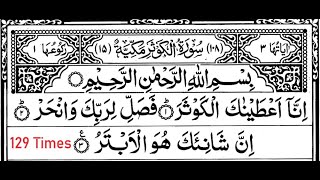 اٰیَاتُهَا ٣ (١٠٨) سُوْرَةُ الْكَوْثَرِ مَكِّيَّةٌ (١٥) رُكُوْعُهَا ١
بِسْمِ اللّٰهِ الرَّحْمٰنِ الرَّحِيْمِ
اِنَّاۤ اَعْطَيْنٰكَ الْكَوْثَرَ ۝١ فَصَلِّ لِرَبِّكَ وَانْحَرْ ۝٢
129 Times اِنَّ شَانِئَكَ هُوَ الْاَبْتَرُ ۝٣